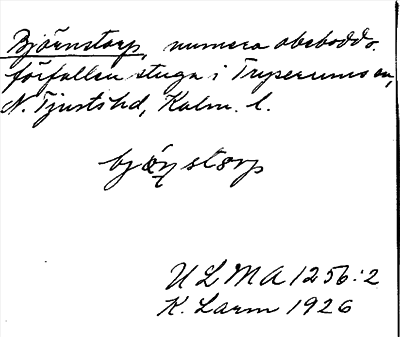 Björnstorp, numera obebodd o.
förfallen stuga i Tryserums sn,
N. Tjusts hd, Kalm. l.
bjǿn̥storp
ULMA 1256:2
K. Larm 1926